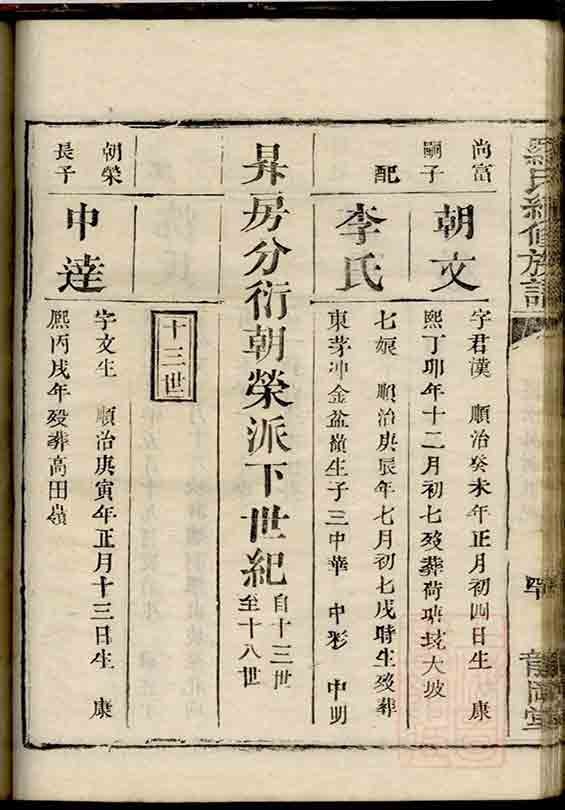 羅氏續修族譜
尚富
嗣子
朝文
字君漢 順治癸未年正月初四日生 康
熙丁卯年十二月初七歿葬荷塘坑大坡
配
李氏
七娘 順治庚辰年七月初七戌時生歿葬
東芽冲金盆嶺生子三中華 中彩 中明
昇房分衍朝榮派下世紀
自十三世
至十八世
十三世
朝榮
長子
中達
字文生 順治庚寅年正月十三日生 康
熙丙戌年歿葬高田嶺